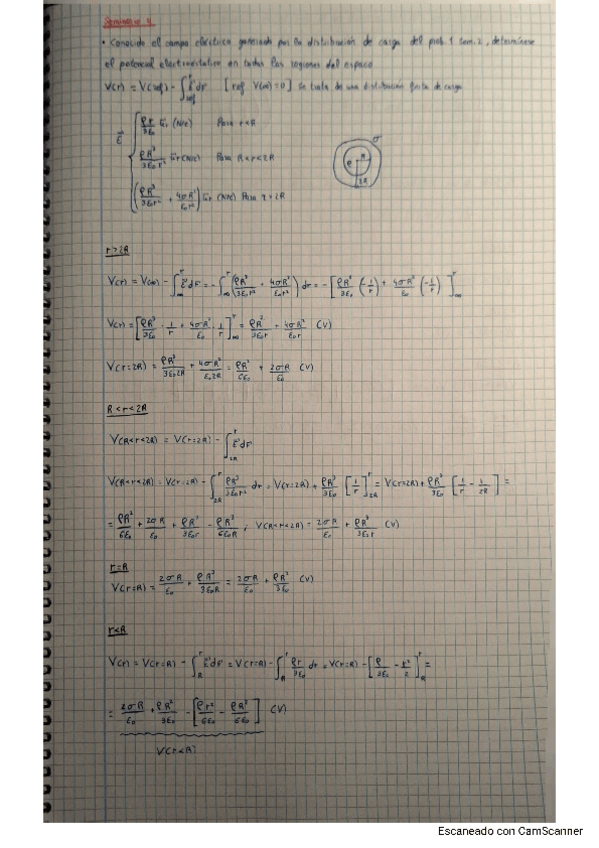 Seminario 4
• Conocido el campo eléctrico generado por la distribución de carga del prob. 1 tem. 2, determínese
el potencial electrostático en todas las regiones del espacio
V(r) = V(ref) - ∫_ref^r E⃗ dr⃗ [ref V(∞) = 0] Se trata de una distribución finita de carga
E⃗ { ρr/3ε₀ u⃗r (N/C) Para r<R
ρR³/3ε₀r² u⃗r (N/C) Para R<r<2R
(ρR³/3ε₀r² + 4σR²/ε₀r²) u⃗r (N/C) Para r>2R
σ
ρ R
2R
r>2R
V(r) = V(∞) - ∫_∞^r E⃗ dr⃗ = -∫_∞^r (ρR³/3ε₀r² + 4σR²/ε₀r²) dr = -[ρR³/3ε₀ (-1/r) + 4σR²/ε₀ (-1/r)]_∞^r
V(r) = [ρR³/3ε₀ · 1/r + 4σR²/ε₀ · 1/r]_∞^r = ρR³/3ε₀r + 4σR²/ε₀r (V)
V(r=2R) = ρR³/3ε₀2R + 4σR²/ε₀2R = ρR²/6ε₀ + 2σR/ε₀ (V)
R<r<2R
V(R<r<2R) = V(r=2R) - ∫_2R^r E⃗ dr⃗
V(R<r<2R) = V(r=2R) - ∫_2R^r ρR³/3ε₀r² dr = V(r=2R) + ρR³/3ε₀ [1/r]_2R^r = V(r=2R) + ρR³/3ε₀ [1/r - 1/2R] =
= ρR²/6ε₀ + 2σR/ε₀ + ρR³/3ε₀r - ρR³/6ε₀R ; V(R<r<2R) = 2σR/ε₀ + ρR³/3ε₀r (V)
r=R
V(r=R) = 2σR/ε₀ + ρR³/3ε₀R = 2σR/ε₀ + ρR²/3ε₀ (V)
r<R
V(r) = V(r=R) - ∫_R^r E⃗ dr⃗ = V(r=R) - ∫_R^r ρr/3ε₀ dr = V(r=R) - [ρ/3ε₀ · r²/2]_R^r =
= 2σR/ε₀ + ρR²/3ε₀ - [ρr²/6ε₀ - ρR²/6ε₀] (V)
V(r<R)
Escaneado con CamScanner